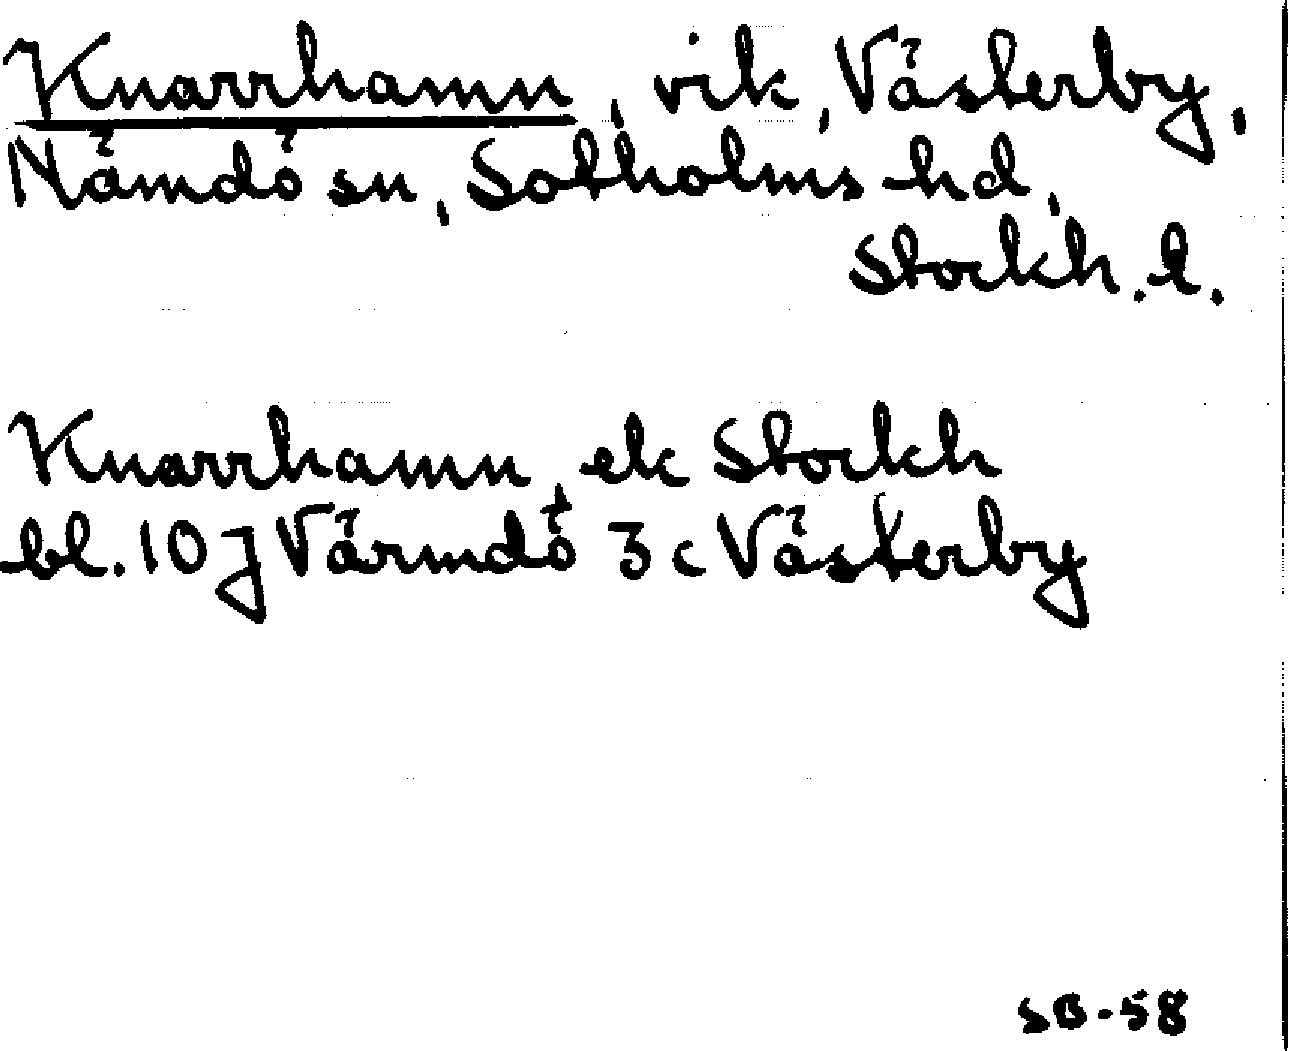 Knarrhamn, vik, Västerby,
Nämdö sn, Sotholms hd,
Stockh. l.
Knarrhamn, ek Stockh
bl. 10 J Värmdö 3 c Västerby
SB-58